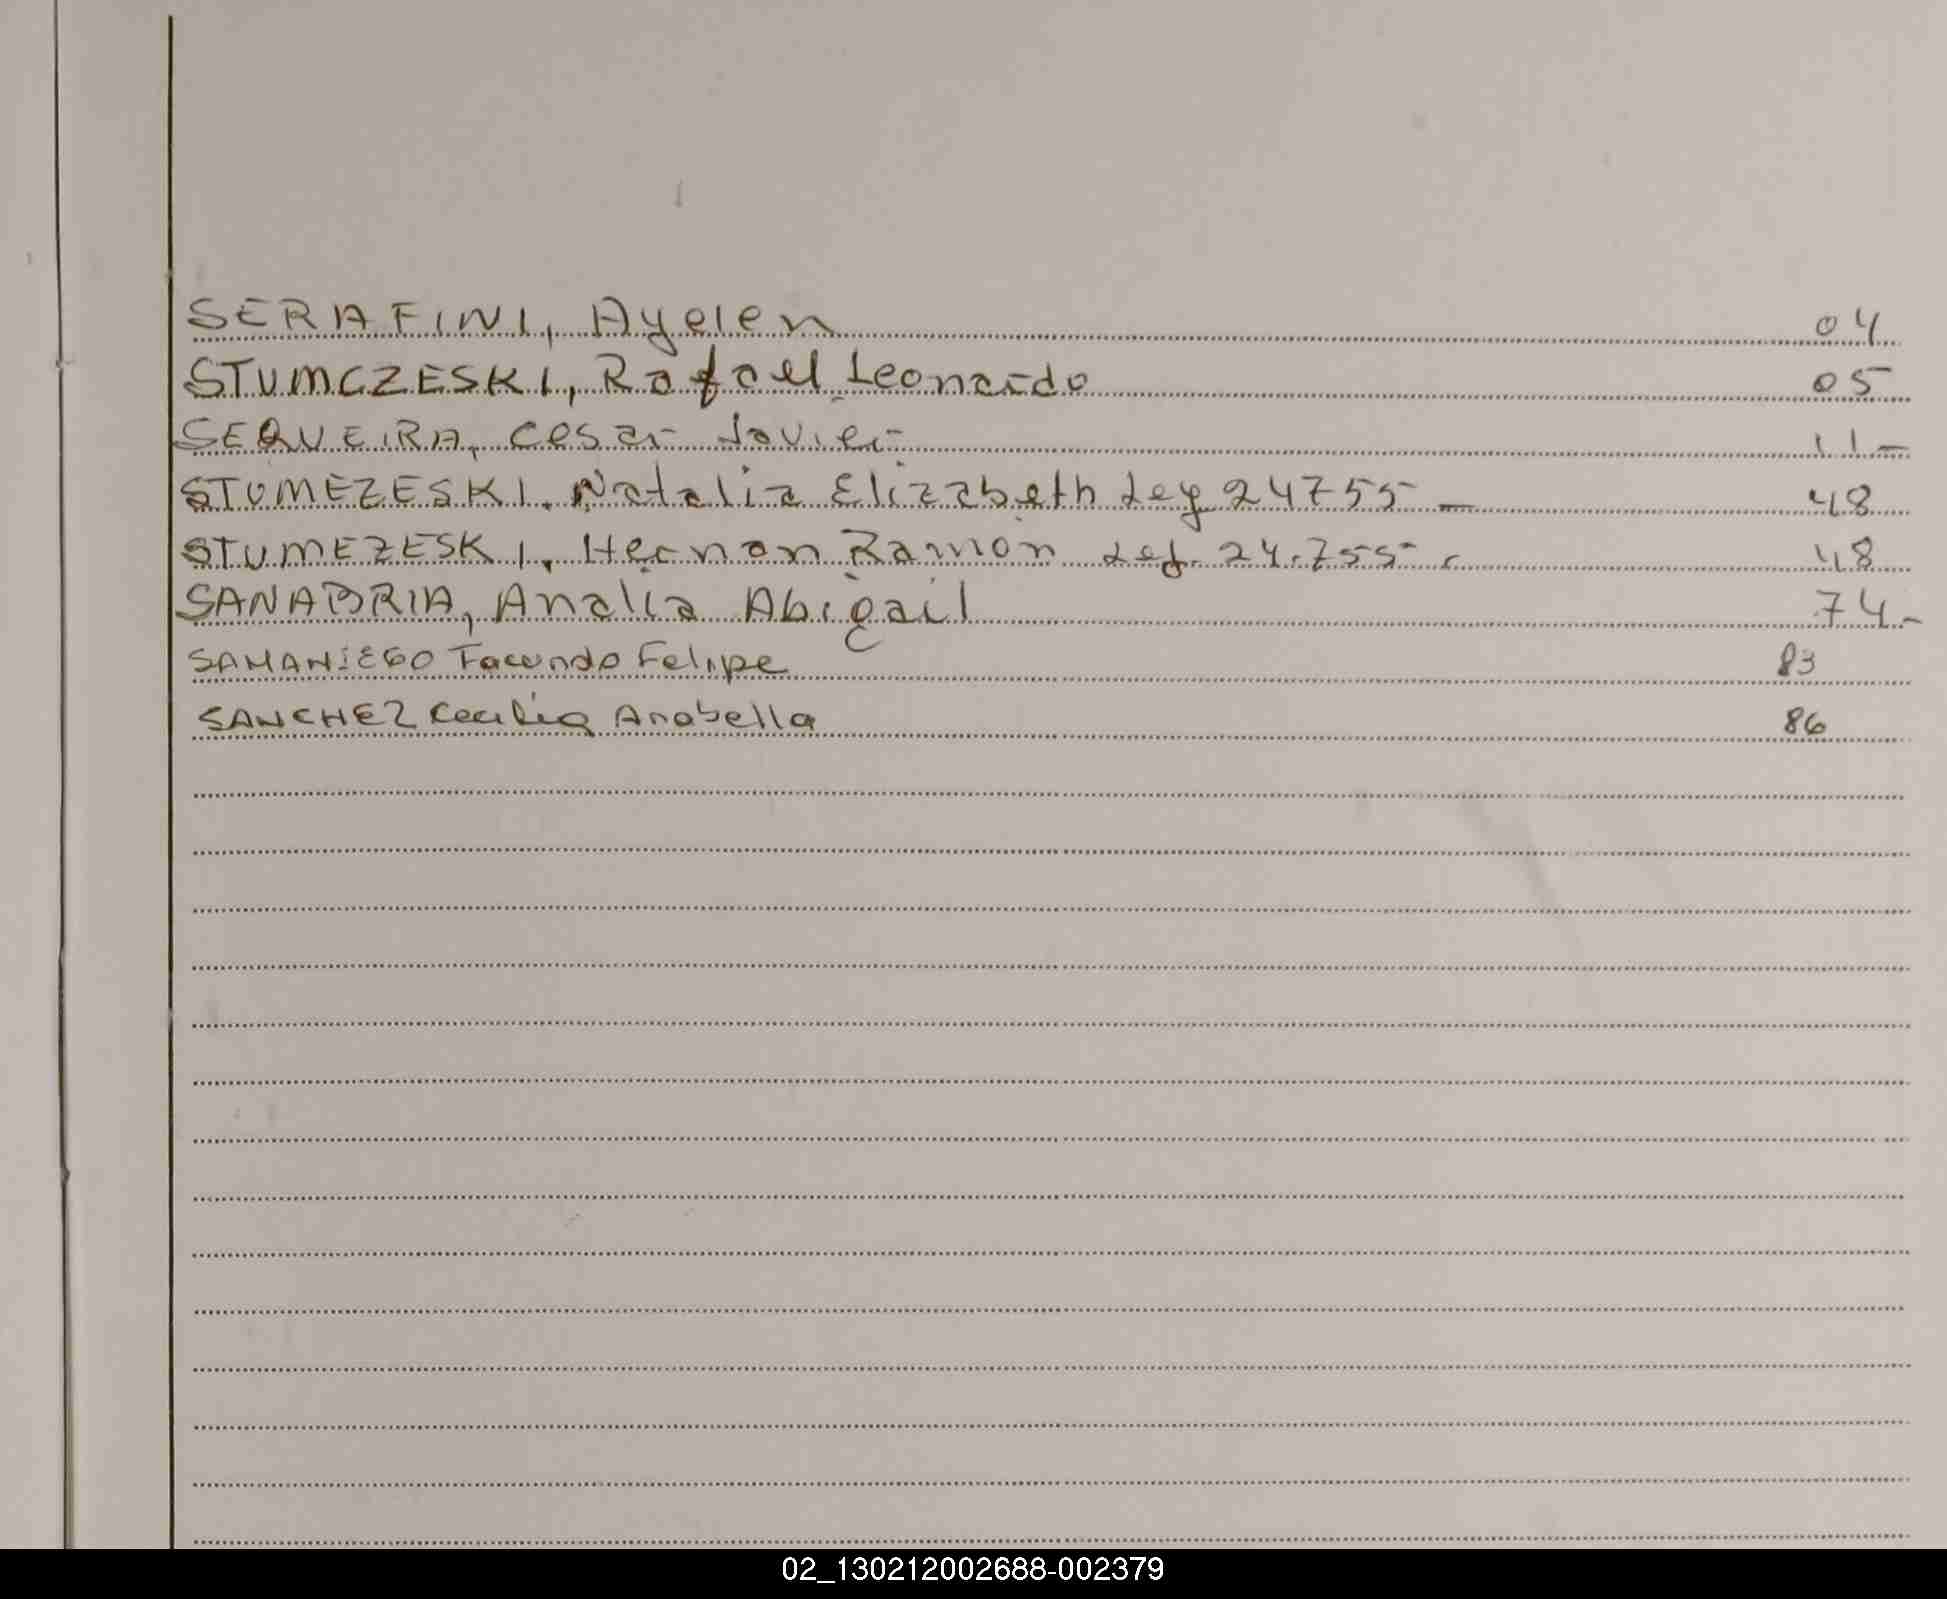 SERAFINI, Ayelen 04
STUMCZESKI, Rafael Leonardo 05
SEQUEIRA, Cesar Javier 11-
STUMEZESKI, Natalia Elizabeth Ley 24755 - 48
STUMEZESKI, Hernan Ramon Ley. 24.755 - 48
SANABRIA, Analia Abigail 74-
SAMANIEGO Facundo Felipe 83
SANCHEZ Cecilia Anabella 86
02_130212002688-002379